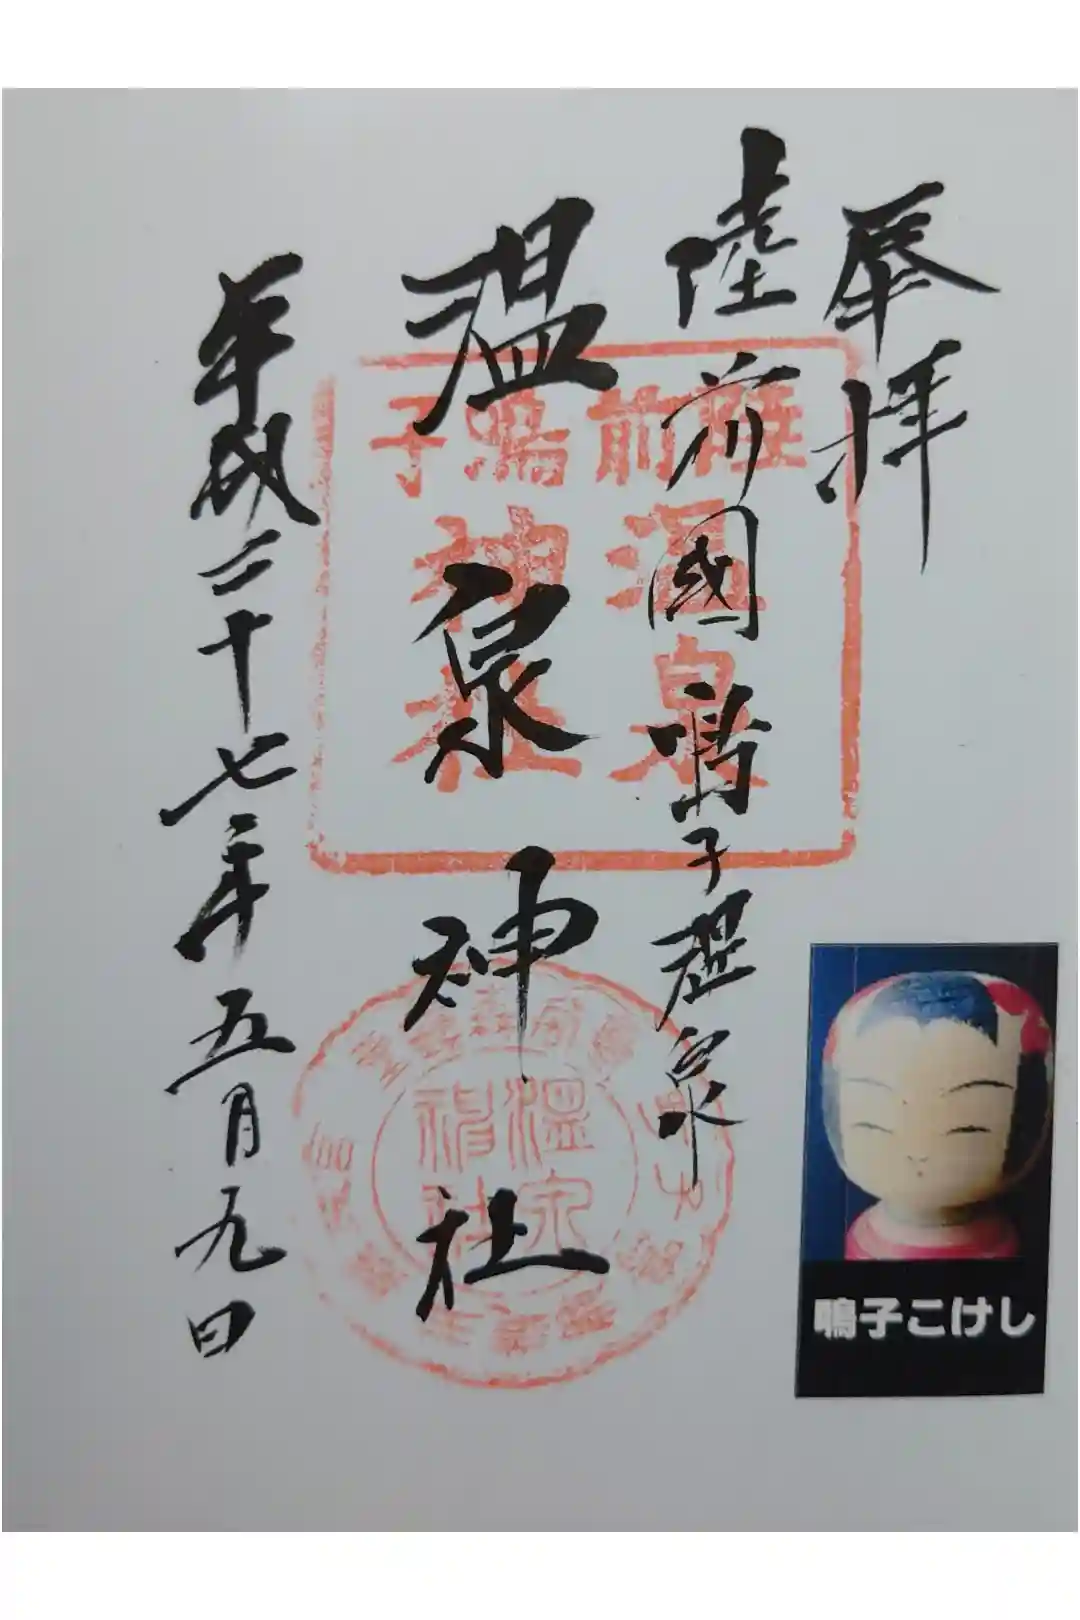 奉拝
陸前國鳴子温泉
温泉神社
平成二十七年五月九日
陸前
鳴子
温泉
神社
温泉
神社
鳴子こけし